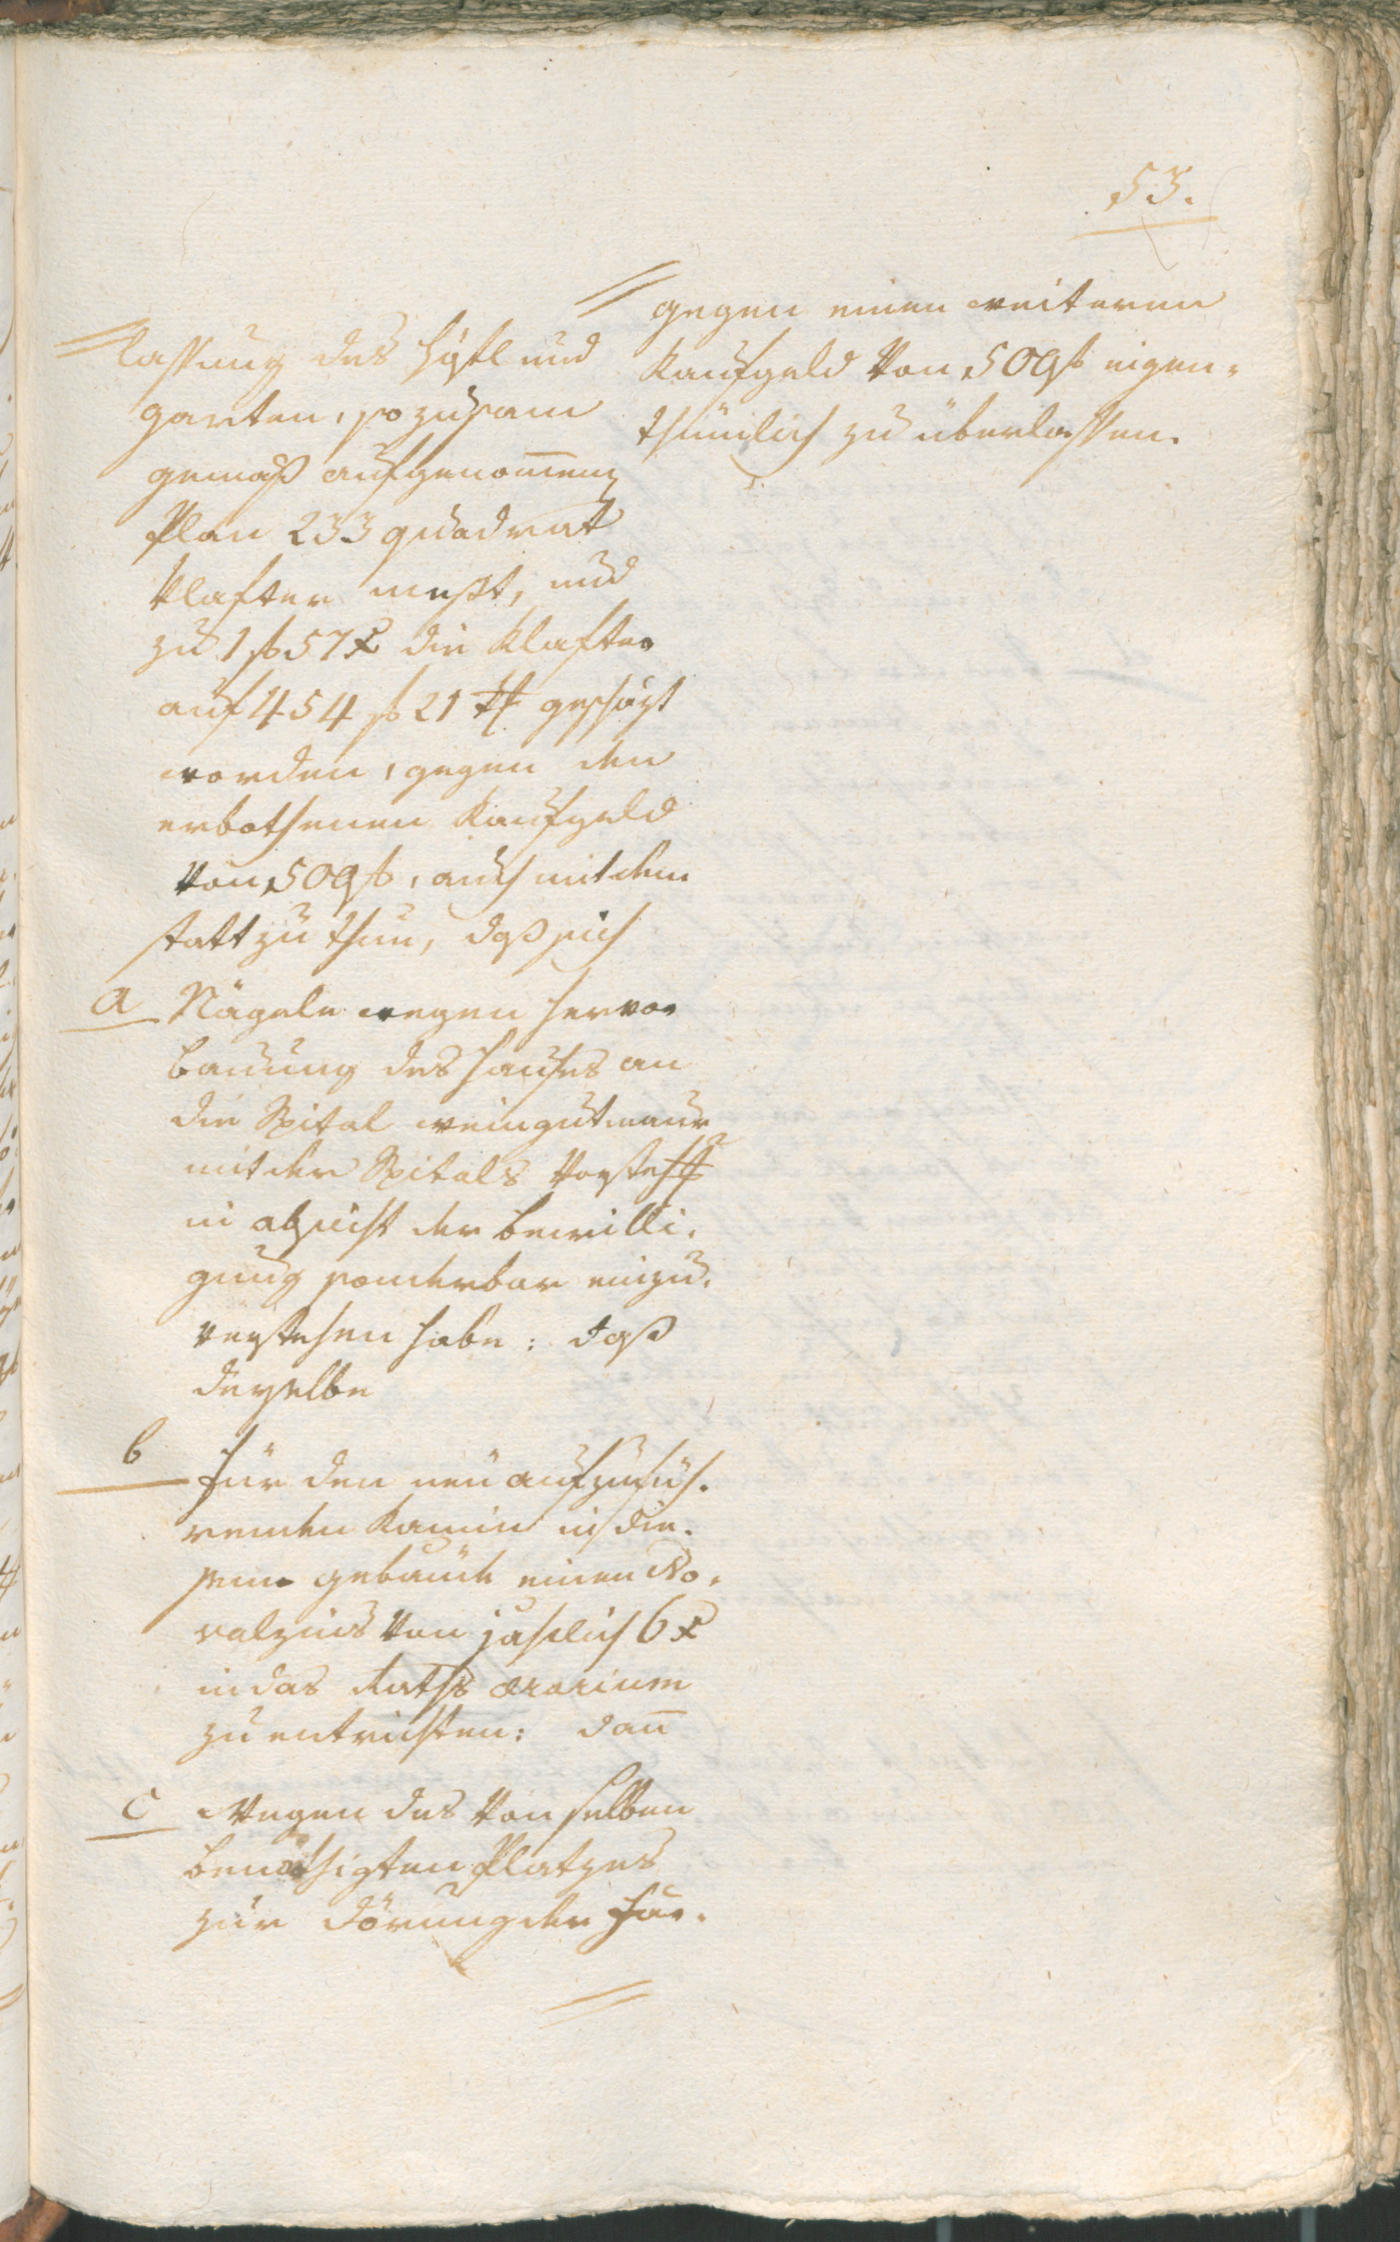 53.
lassung des Höfl und
garten, so zusam
gemäß aufgenom̄enen
Plan 233 quadrat
klafter meßt, und
zu 1 f 57 x die klafter
auf 454 f 21 x geschäzt
worden, gegen den
erbothenen Kaufgeld
von 509 f, auch mit dem
statt zu thun, daß sich
a Nägele wegen hervor
bauung des Hauses an
die Spital weingutmaur
mit der Spitals Vorsteh
in absicht der bewilli-
gung sonderbar einzu-
verstehen habe: daß
derselbe
b für den neu aufzufüh-
renden Kamin in die-
sem gebäude einen No-
valzins von jährlich 6 x
in das Raths ærarium
zu entrichten: dan̄
c Wegen des von selben
benöthigten Platzes
zur Dörung der Häu-
gegen einen weiteren
Kaufgeld von 509 f eigen-
thümlich zu überlassen.